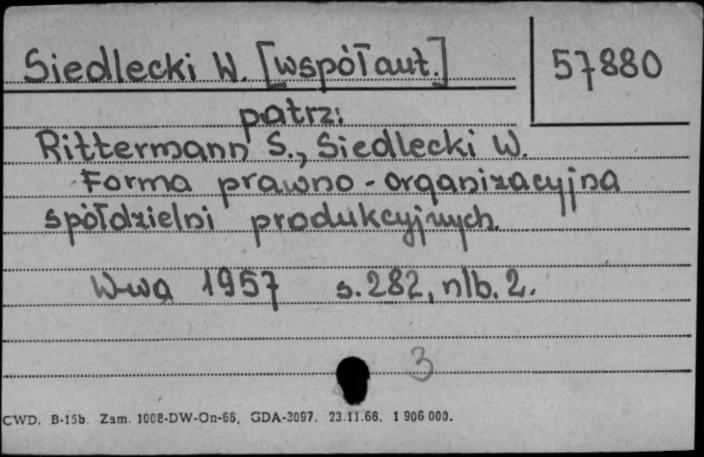 Siedlecki W. [współaut.]
57880
patrz:
Rittermann S., Siedlecki W.
Forma prawno-organizacyjna
spółdzielni produkcyjnych.
W-wa 1957 s. 282, nlb. 2.
3
CWD. B-15b. Zam. 1008-DW-On-66, GDA-3097. 23.11.66. 1 906 000.